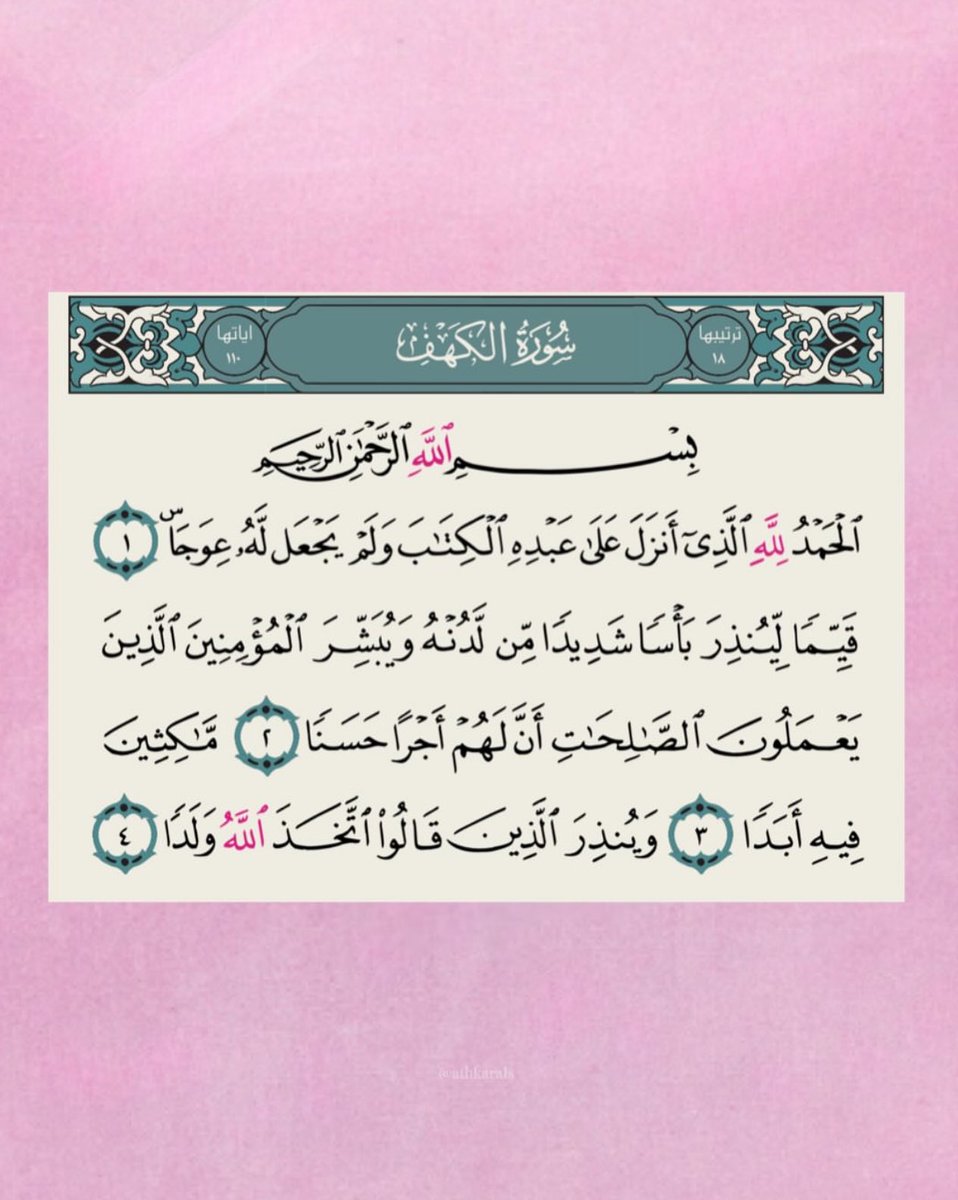 ترتيبها ١٨
سُورَةُ الكَهْفِ
اياتها ١١٠
بِسْمِ ٱللَّهِ ٱلرَّحْمَٰنِ ٱلرَّحِيمِ
ٱلْحَمْدُ لِلَّهِ ٱلَّذِىٓ أَنزَلَ عَلَىٰ عَبْدِهِ ٱلْكِتَٰبَ وَلَمْ يَجْعَل لَّهُۥ عِوَجَاۜ ١
قَيِّمًا لِّيُنذِرَ بَأْسًا شَدِيدًا مِّن لَّدُنْهُ وَيُبَشِّرَ ٱلْمُؤْمِنِينَ ٱلَّذِينَ
يَعْمَلُونَ ٱلصَّٰلِحَٰتِ أَنَّ لَهُمْ أَجْرًا حَسَنًا ٢ مَّٰكِثِينَ
فِيهِ أَبَدًا ٣ وَيُنذِرَ ٱلَّذِينَ قَالُوا۟ ٱتَّخَذَ ٱللَّهُ وَلَدًا ٤